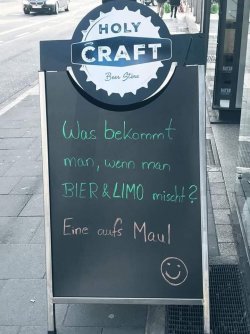 HOLY
CRAFT
Beer Store
Was bekommt
man, wenn man
BIER & LIMO mischt?
Eine aufs Maul